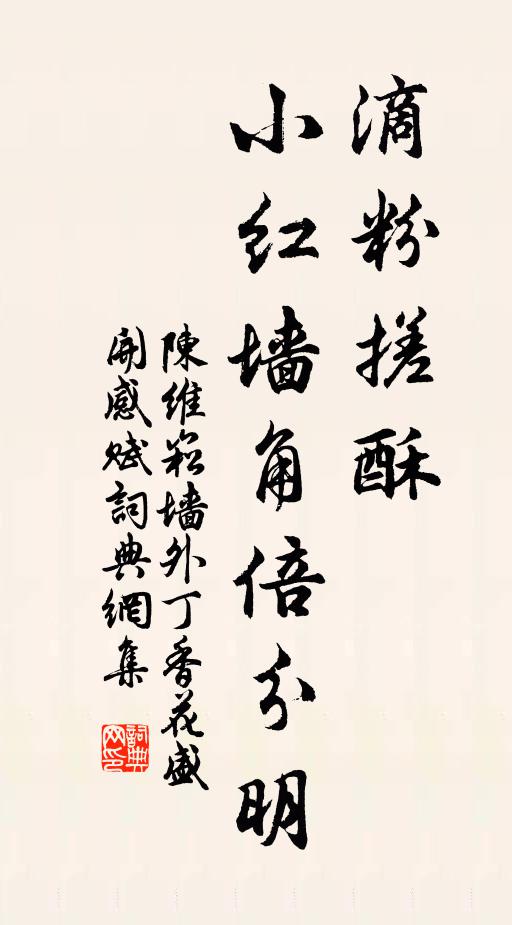 滴粉搓酥
小红墙角倍分明
陳維崧墙外丁香花盛
開感賦詞典網集
詞典
网印